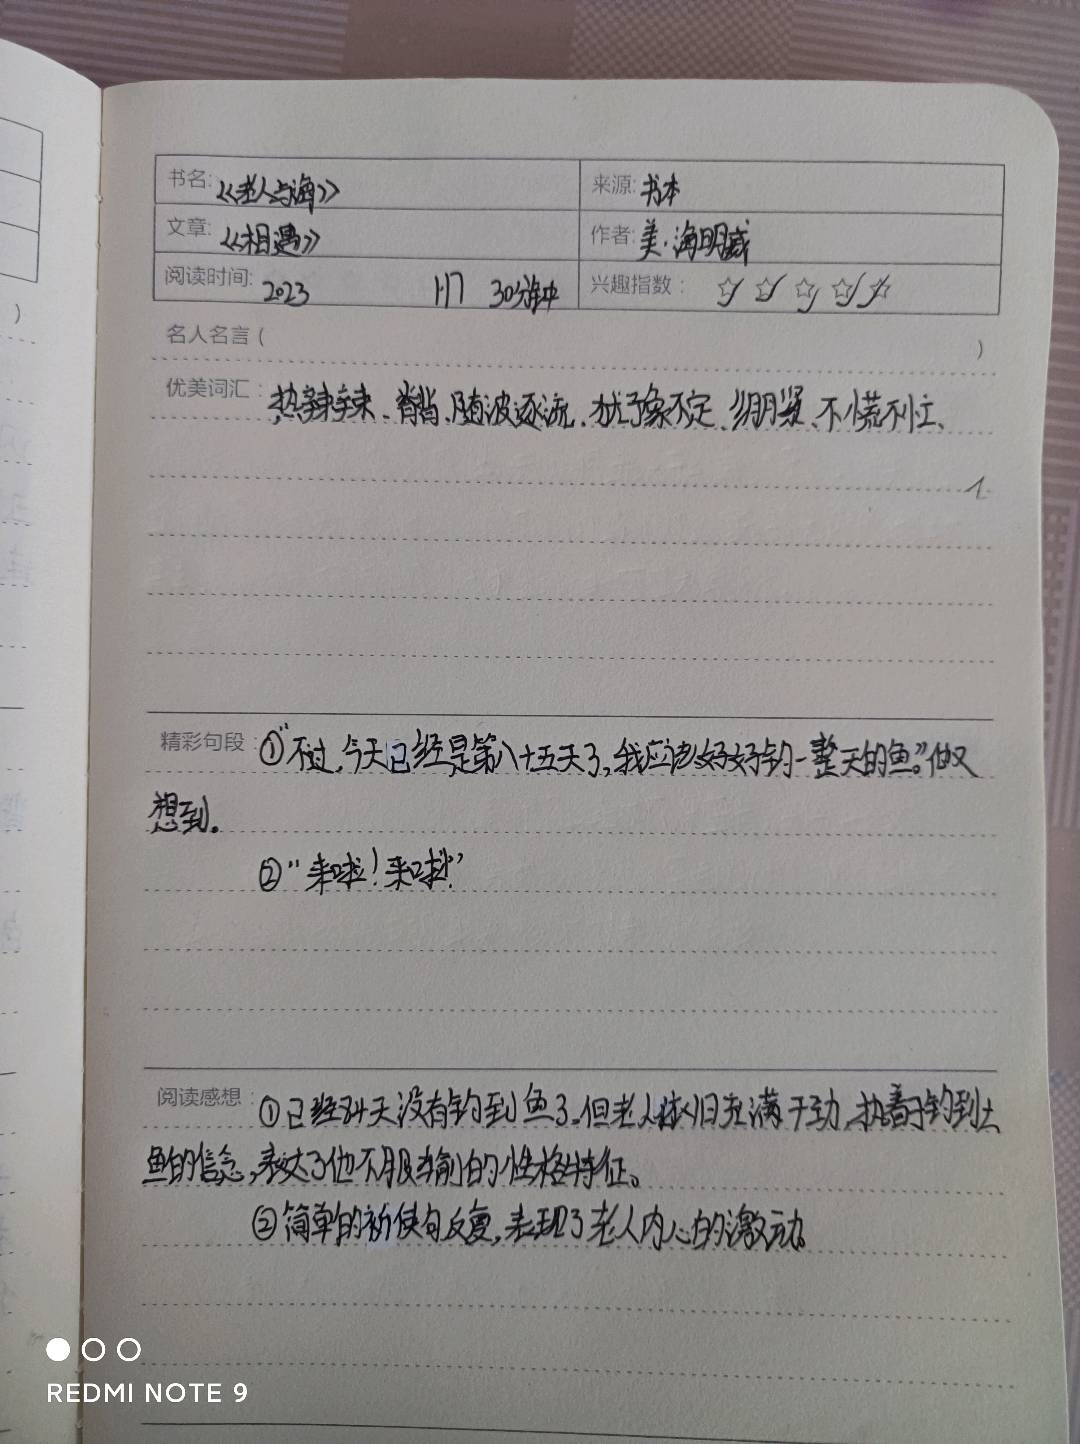 书名:《老人与海》 来源:书本
文章:《相遇》 作者:美·海明威
阅读时间: 2023 1.17 30分钟 兴趣指数: ☆☆☆☆☆
名人名言( )
优美词汇:热辣辣、脊背、随波逐流、犹豫不定、绷紧、不慌不忙、
精彩句段:①"不过,今天已经是第八十五天了,我应该好好钓一整天的鱼。"他又
想到。
②"来啦!来啦!"
阅读感想:①已经84天没有钓到鱼了,但老人依旧充满干劲,执着于钓到大
鱼的信念,表达了他不服输的性格特征。
②简单的祈使句反复,表现了老人内心的激动
REDMI NOTE 9